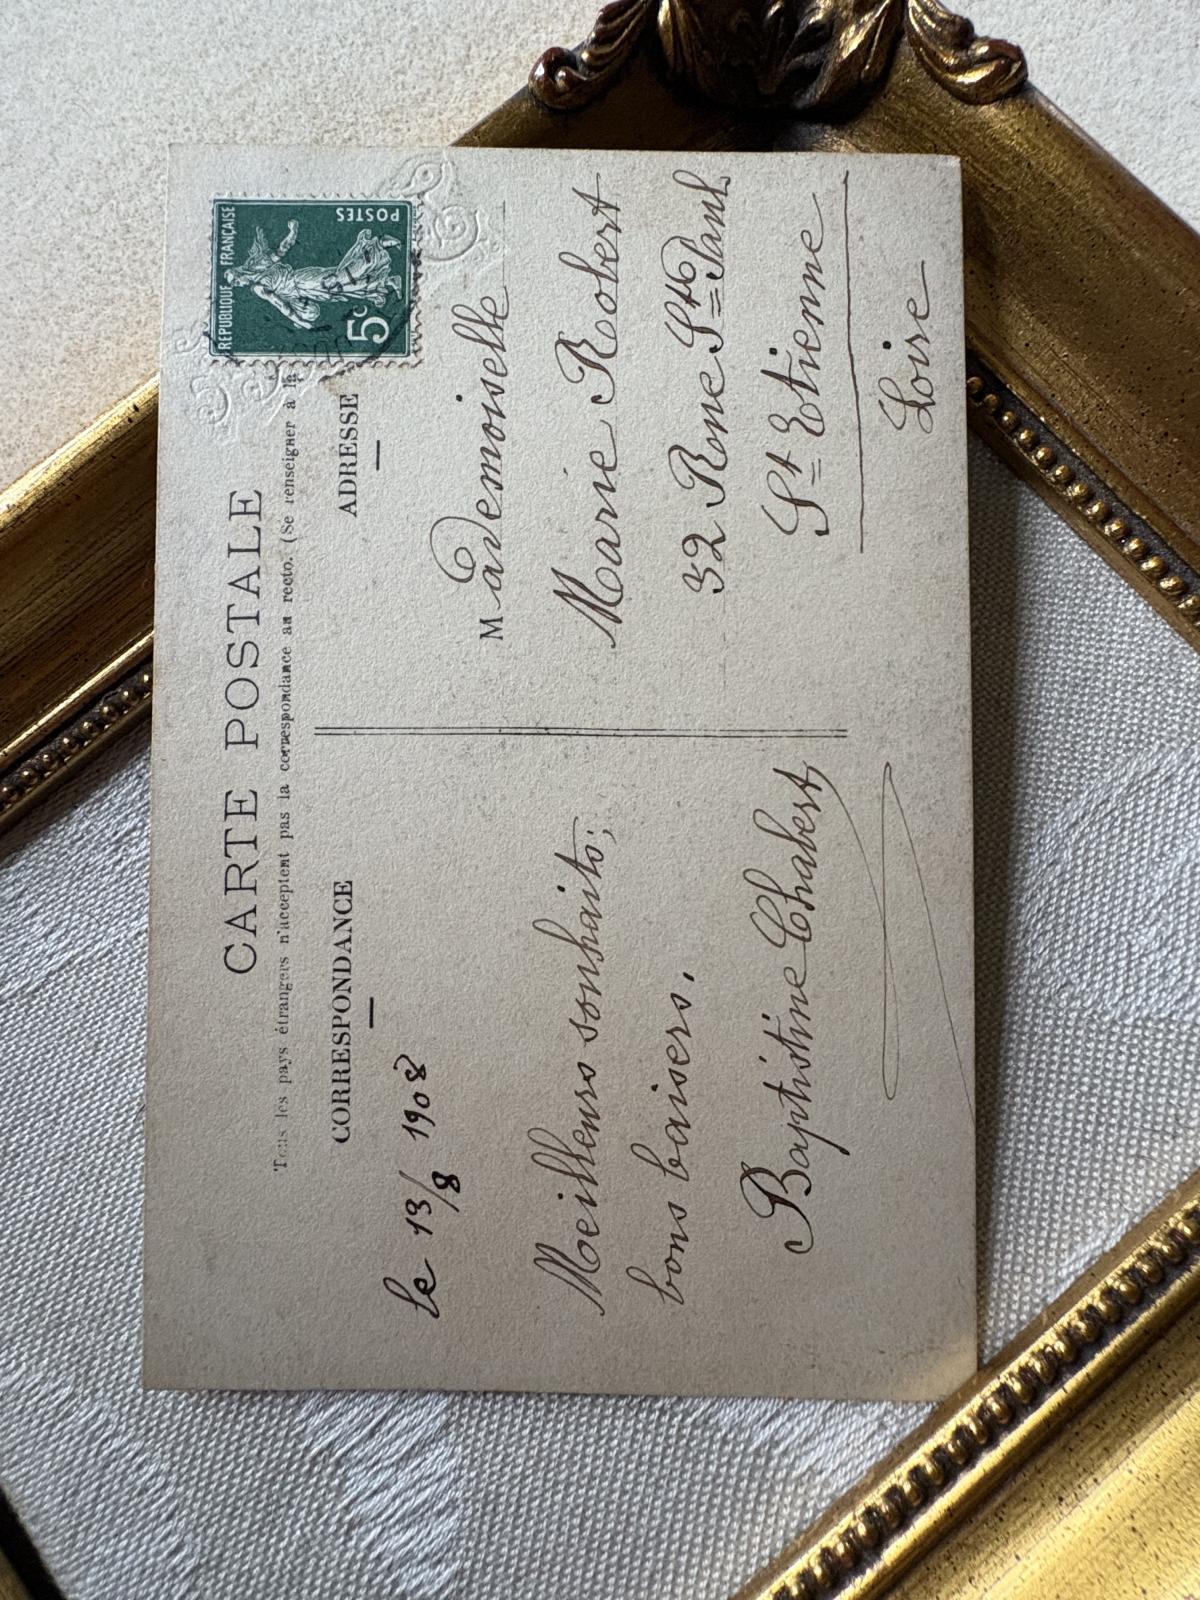 CARTE POSTALE
Tous les pays étrangers n'acceptent pas la correspondance au recto. (Se renseigner à la
CORRESPONDANCE
le 13/8 1908
Meilleurs souhaits;
bons baisers.
Baptistine Chabert
ADRESSE
Mademoiselle
Marie Robert
32 Rue St Paul
St Etienne
Loire
REPUBLIQUE FRANÇAISE
POSTES
5c